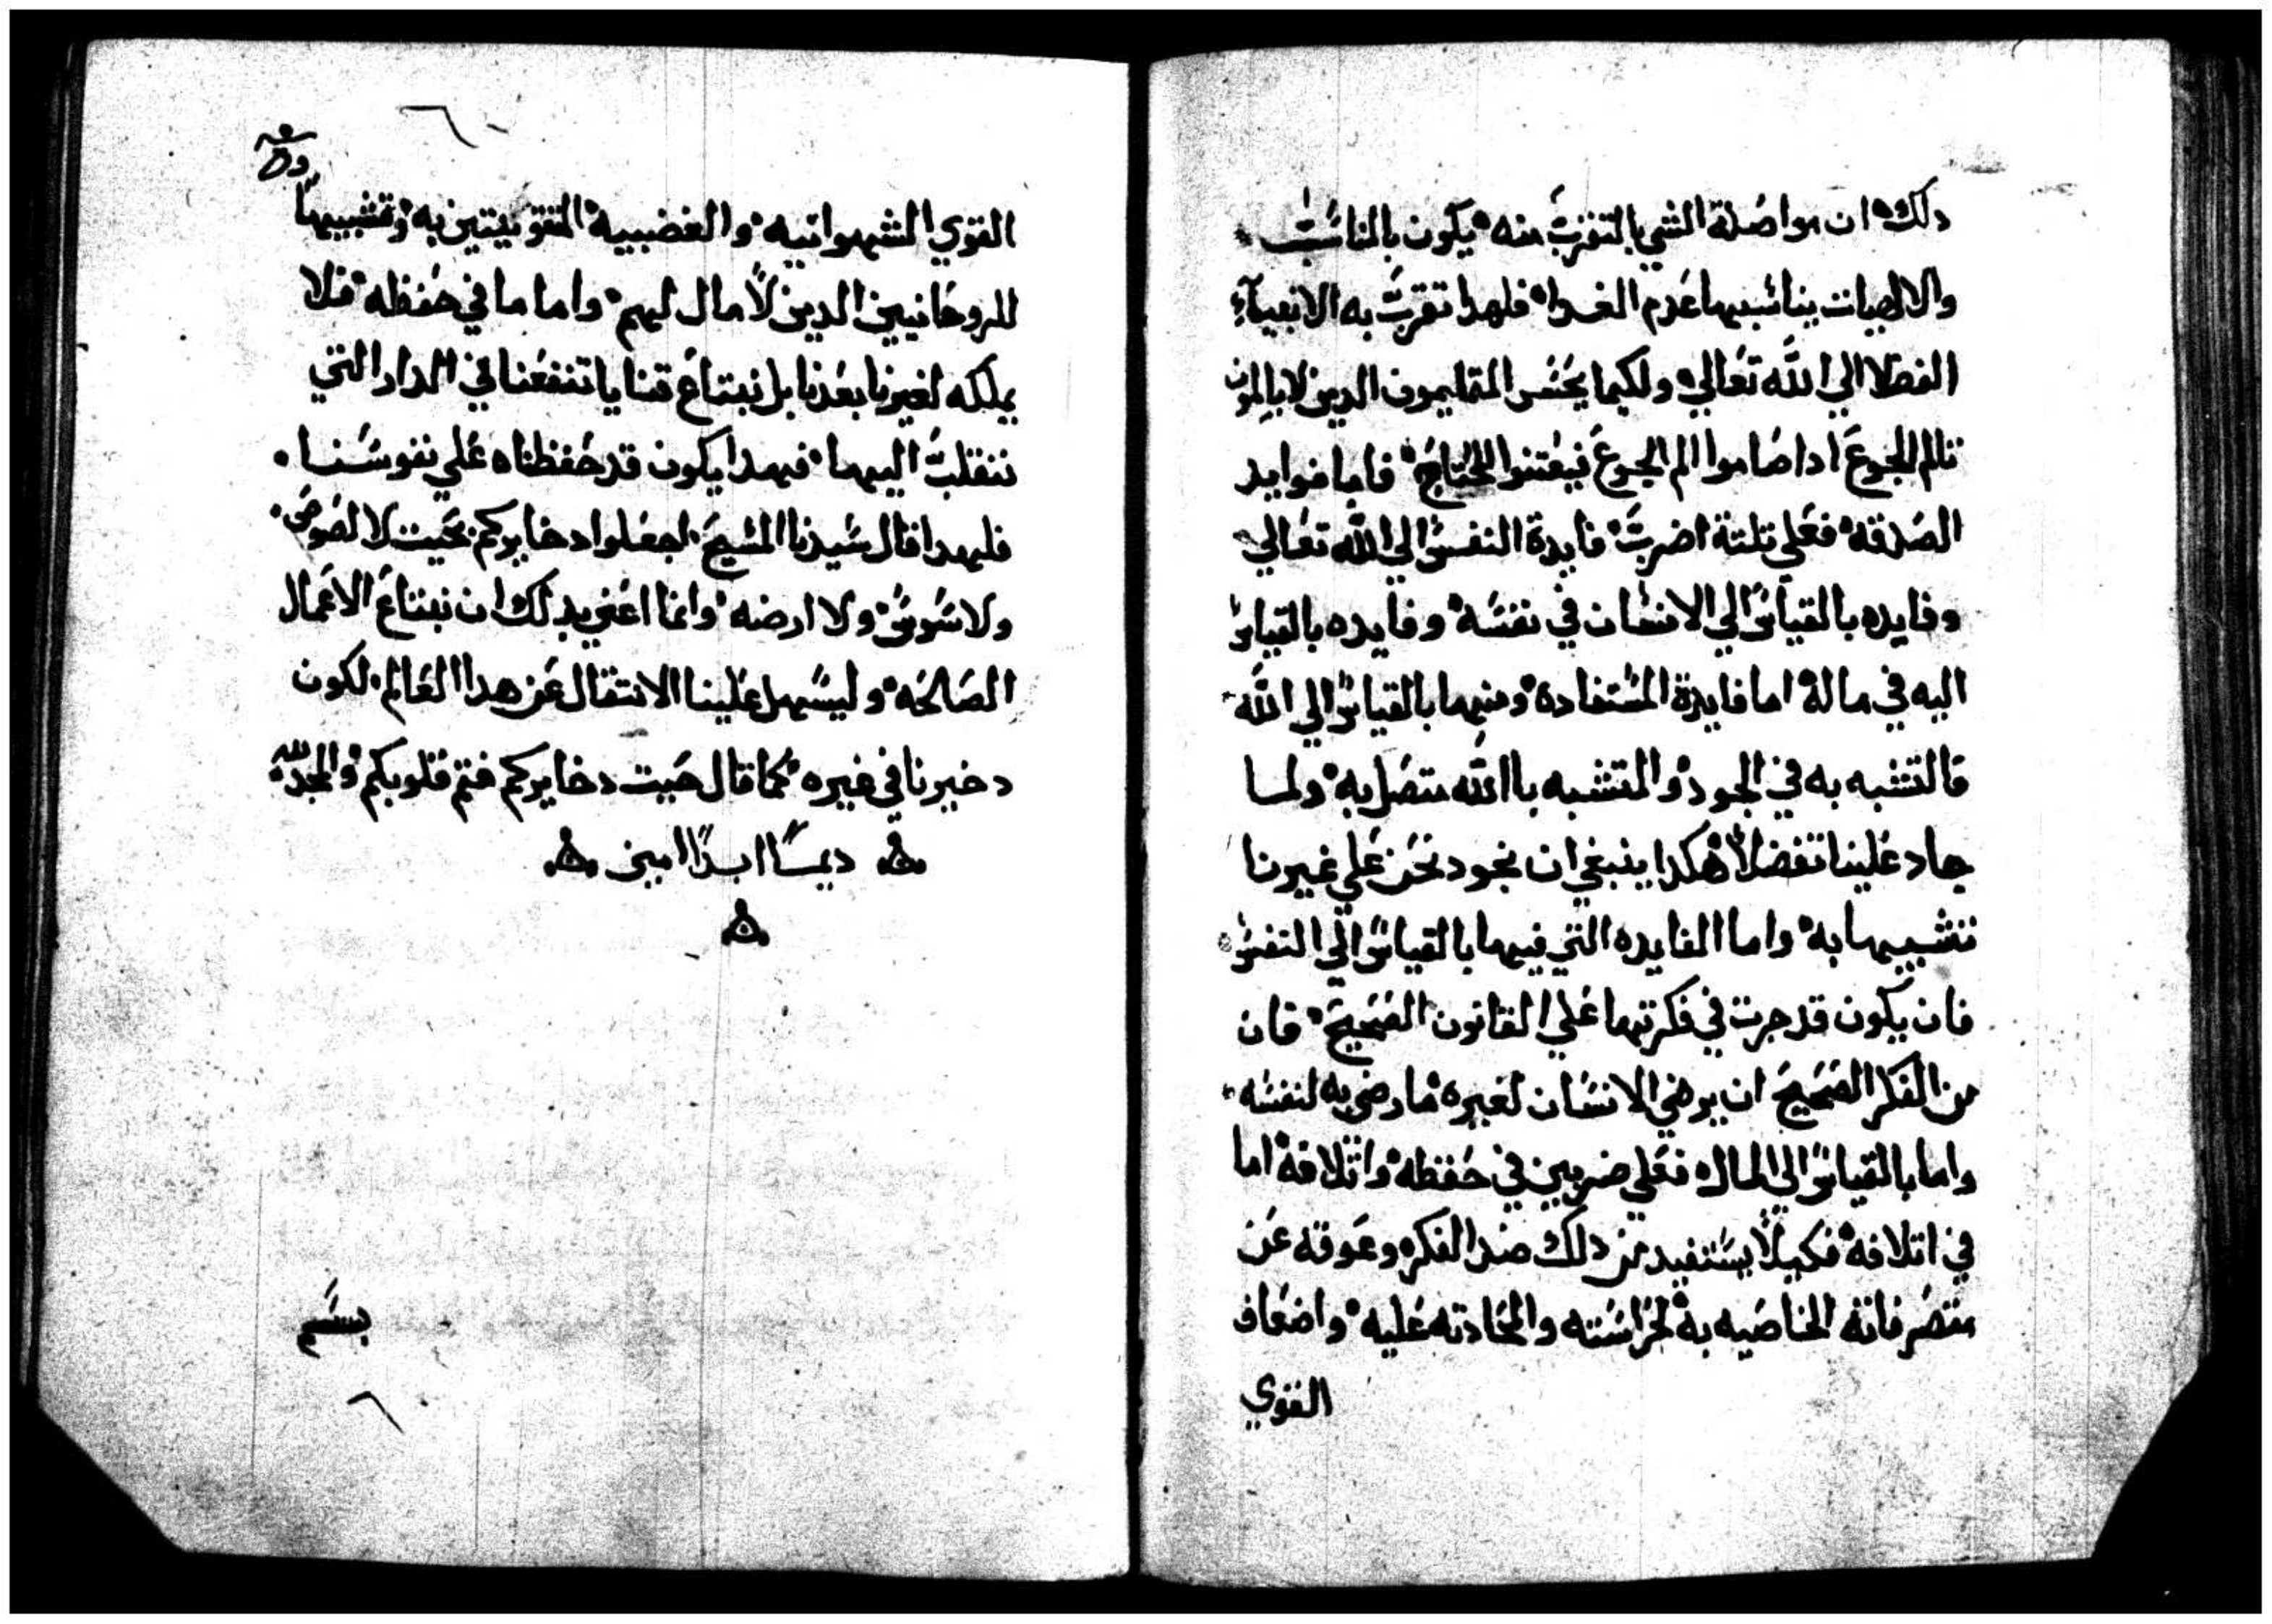 دلك ان مواصلة الشي بالتقرب منه يكون بالمناسبات
والالهيات يناسبها عدم الغدا فلهدا تقربت به الانبيآء
الفضلا الي الله تعالي ولكيما يحس الدين لا
تالم الجوع ادا صاموا الم الجوع فيعتنوا المحتاج فاما فوايد
الصدقه فعلي تلتة اضرب فايدة النفس الي الله تعالي
وفايده بالقياس الي الانسان في نفسه وفايده بالقياس
اليه في ماله اما فايدة المستفادة ومنها بالقياس الي الله
فالتشبه به في الجود والمتشبه باالله متصل به ولما
جاد علينا تفضلاً هكدا ينبغي ان نجود نحن علي غيرنا
تشبيها به واما الفايده التي فيها بالقياس الي النفس
فان يكون قد جرت في فكرتها علي القانون الصحيح فان
من الفكر الصحيح ان يرضي الانسان لغيره ما رضي به لنفسه
واما بالقياس الي المال فعلي ضربين في حفظه واتلافه اما
في اتلافه فكيلاً يستفيد من دلك ضد الفكره وعوقه عن
متصرفاته الخاصيه به لحراسته والمحادته عليه واضعاف
القوي
القوي الشهوانيه والغضبيه المتقويتين به وتشبيها
للروحانيين الدين لا مال لهم واما ما في حفظه فلا
يملكه لغيرنا بعدنا بل نبتاع قنايا تنفعنا في الدار التي
ننقلب اليها فبهدا يكون قد حفظناه علي نفوسنا
فلهدا قال سيدنا المسيح اجعلوا دخايركم بحيت لا لصوص
ولا سوس ولا ارضه وانما اعني بدلك ان نبتاع الاعمال
الصالحه وليسهل علينا الانتقال عن هدا العالم لكون
دخيرنا في غيره كما قال حيت دخايركم فتم قلوبكم والمجد لله
ديمًا ابدًا امين
بسم